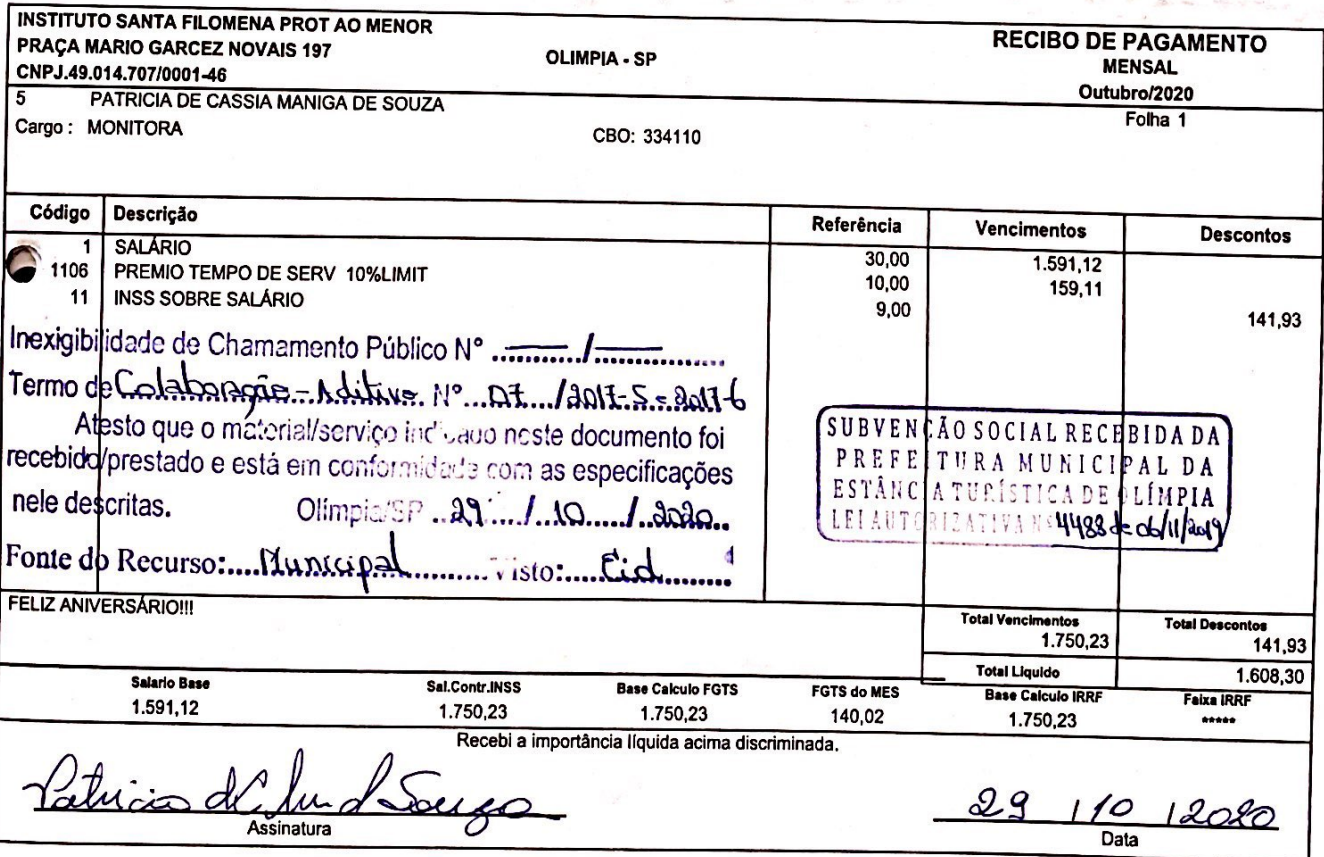 INSTITUTO SANTA FILOMENA PROT AO MENOR
PRAÇA MARIO GARCEZ NOVAIS 197 OLIMPIA - SP
CNPJ.49.014.707/0001-46
RECIBO DE PAGAMENTO
MENSAL
Outubro/2020
5 PATRICIA DE CASSIA MANIGA DE SOUZA
Folha 1
Cargo : MONITORA CBO: 334110
Código Descrição Referência Vencimentos Descontos
1 SALÁRIO 30,00 1.591,12
1106 PREMIO TEMPO DE SERV 10%LIMIT 10,00 159,11
11 INSS SOBRE SALÁRIO 9,00 141,93
Inexigibilidade de Chamamento Público N° ........../...............
Termo de Colaboração - Aditivo. N°...07..../2017-5 = 2017-6
Atesto que o material/serviço indicado neste documento foi
recebido/prestado e está em conformidade com as especificações
nele descritas. Olímpia/SP ..29...../..10...../..2020..
Fonte do Recurso:....Municipal.......... Visto:.....Cid.........
SUBVENÇÃO SOCIAL RECEBIDA DA
PREFEITURA MUNICIPAL DA
ESTÂNCIA TURÍSTICA DE OLÍMPIA
LEI AUTORIZATIVA Nº 4488 de 06/11/2019
FELIZ ANIVERSÁRIO!!!
Total Vencimentos Total Descontos
1.750,23 141,93
Total Liquido 1.608,30
Salario Base Sal.Contr.INSS Base Calculo FGTS FGTS do MES Base Calculo IRRF Faixa IRRF
1.591,12 1.750,23 1.750,23 140,02 1.750,23 *****
Recebi a importância líquida acima discriminada.
Patricia de C. M. de Souza 29 / 10 / 2020
Assinatura Data